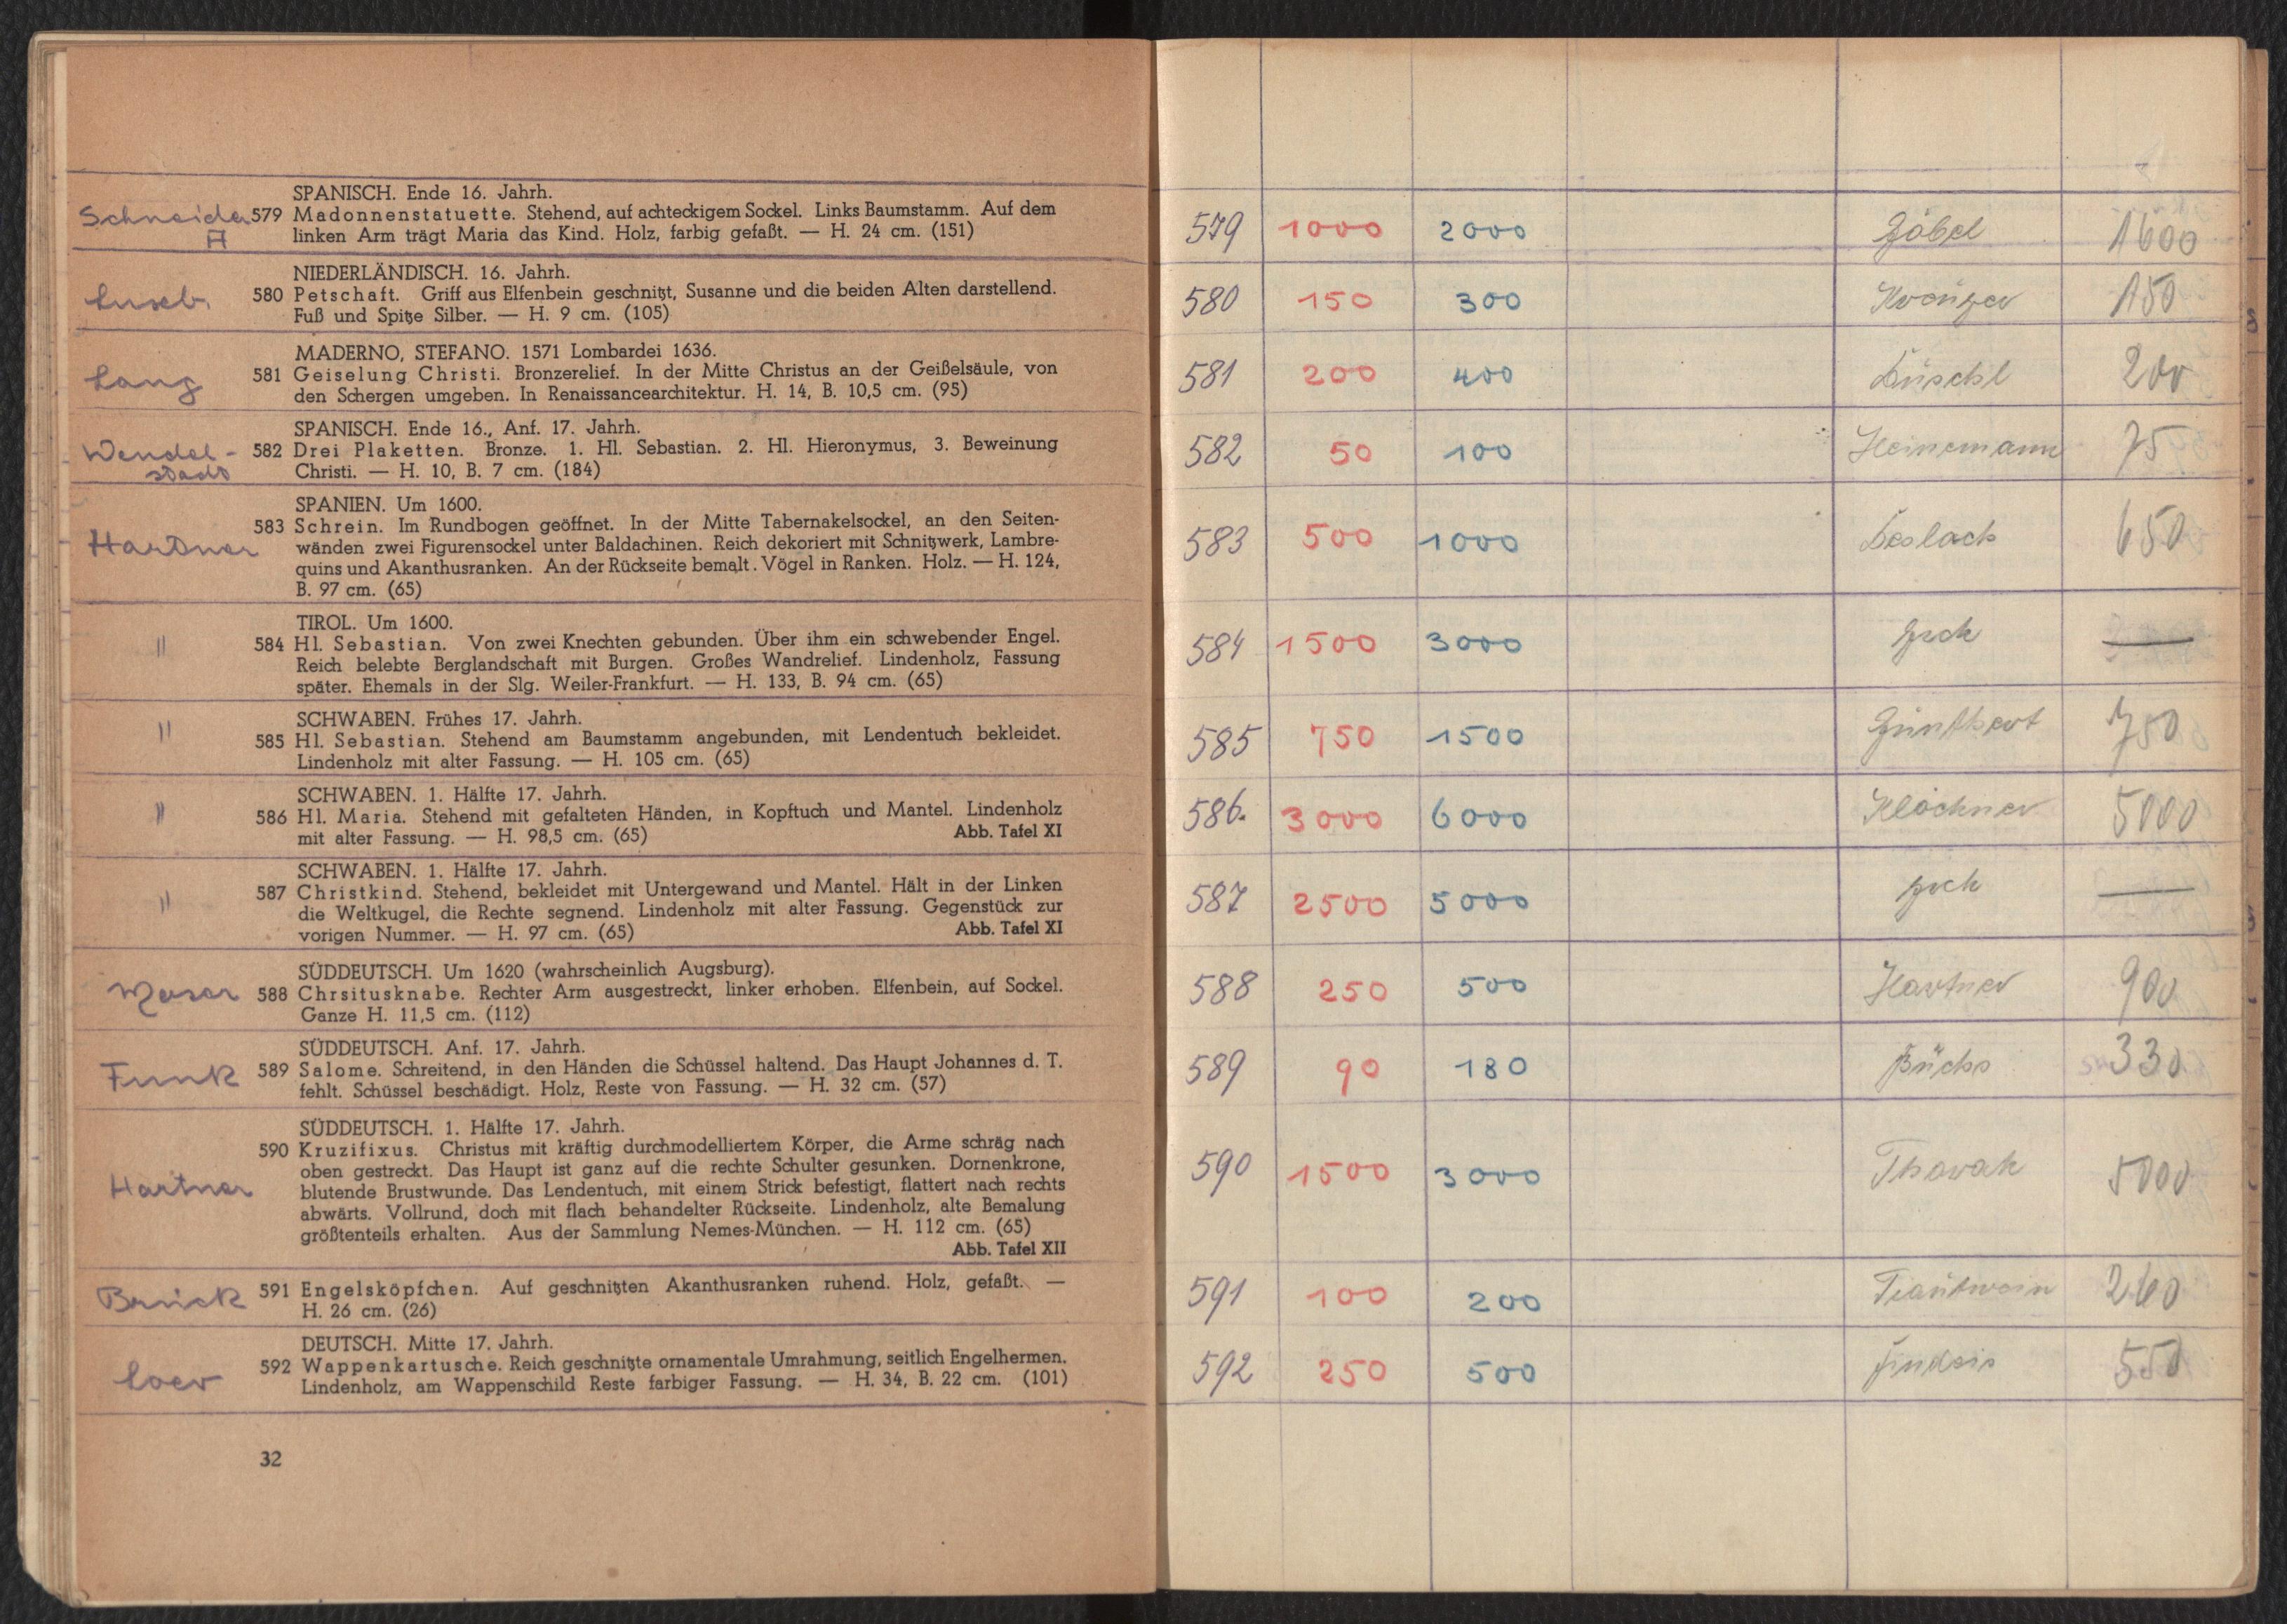 SPANISCH. Ende 16. Jahrh.
Schneider 579 Madonnenstatuette. Stehend, auf achteckigem Sockel. Links Baumstamm. Auf dem
A linken Arm trägt Maria das Kind. Holz, farbig gefaßt. — H. 24 cm. (151)
NIEDERLÄNDISCH. 16. Jahrh.
580 Petschaft. Griff aus Elfenbein geschnitzt, Susanne und die beiden Alten darstellend.
Fuß und Spitze Silber. — H. 9 cm. (105)
MADERNO, STEFANO. 1571 Lombardei 1636.
Lang 581 Geiselung Christi. Bronzerelief. In der Mitte Christus an der Geißelsäule, von
den Schergen umgeben. In Renaissancearchitektur. H. 14, B. 10,5 cm. (95)
SPANISCH. Ende 16., Anf. 17. Jahrh.
Wendel- 582 Drei Plaketten. Bronze. 1. Hl. Sebastian. 2. Hl. Hieronymus, 3. Beweinung
stadt Christi. — H. 10, B. 7 cm. (184)
SPANIEN. Um 1600.
583 Schrein. Im Rundbogen geöffnet. In der Mitte Tabernakelsockel, an den Seiten-
Hartner wänden zwei Figurensockel unter Baldachinen. Reich dekoriert mit Schnitzwerk, Lambre-
quins und Akanthusranken. An der Rückseite bemalt. Vögel in Ranken. Holz. — H. 124,
B. 97 cm. (65)
TIROL. Um 1600.
" 584 Hl. Sebastian. Von zwei Knechten gebunden. Über ihm ein schwebender Engel.
Reich belebte Berglandschaft mit Burgen. Großes Wandrelief. Lindenholz, Fassung
später. Ehemals in der Slg. Weiler-Frankfurt. — H. 133, B. 94 cm. (65)
SCHWABEN. Frühes 17. Jahrh.
" 585 Hl. Sebastian. Stehend am Baumstamm angebunden, mit Lendentuch bekleidet.
Lindenholz mit alter Fassung. — H. 105 cm. (65)
SCHWABEN. 1. Hälfte 17. Jahrh.
" 586 Hl. Maria. Stehend mit gefalteten Händen, in Kopftuch und Mantel. Lindenholz
mit alter Fassung. — H. 98,5 cm. (65) Abb. Tafel XI
SCHWABEN. 1. Hälfte 17. Jahrh.
" 587 Christkind. Stehend, bekleidet mit Untergewand und Mantel. Hält in der Linken
die Weltkugel, die Rechte segnend. Lindenholz mit alter Fassung. Gegenstück zur
vorigen Nummer. — H. 97 cm. (65) Abb. Tafel XI
SÜDDEUTSCH. Um 1620 (wahrscheinlich Augsburg).
588 Chrsitusknabe. Rechter Arm ausgestreckt, linker erhoben. Elfenbein, auf Sockel.
Ganze H. 11,5 cm. (112)
SÜDDEUTSCH. Anf. 17. Jahrh.
Funk 589 Salome. Schreitend, in den Händen die Schüssel haltend. Das Haupt Johannes d. T.
fehlt. Schüssel beschädigt. Holz, Reste von Fassung. — H. 32 cm. (57)
SÜDDEUTSCH. 1. Hälfte 17. Jahrh.
590 Kruzifixus. Christus mit kräftig durchmodelliertem Körper, die Arme schräg nach
oben gestreckt. Das Haupt ist ganz auf die rechte Schulter gesunken. Dornenkrone,
Hartner blutende Brustwunde. Das Lendentuch, mit einem Strick befestigt, flattert nach rechts
abwärts. Vollrund, doch mit flach behandelter Rückseite. Lindenholz, alte Bemalung
größtenteils erhalten. Aus der Sammlung Nemes-München. — H. 112 cm. (65)
Abb. Tafel XII
Brück 591 Engelsköpfchen. Auf geschnitzten Akanthusranken ruhend. Holz, gefaßt. —
H. 26 cm. (26)
DEUTSCH. Mitte 17. Jahrh.
592 Wappenkartusche. Reich geschnitzte ornamentale Umrahmung, seitlich Engelhermen.
Lindenholz, am Wappenschild Reste farbiger Fassung. — H. 34, B. 22 cm. (101)
32
579 1000 2000 Göbel 1600
580 150 300 150
581 200 400 200
582 50 100 Heinemann 75
583 500 1000 650
584 1500 3000 zrck —
585 750 1500 Günthert 750
586. 3000 6000 Klöckner 5000
587 2500 5000 zrck —
588 250 500 Hartner 900
589 90 180 Büchs 330
590 1500 3000 Thorak 5000
591 100 200 Trautwein 260
592 250 500 550